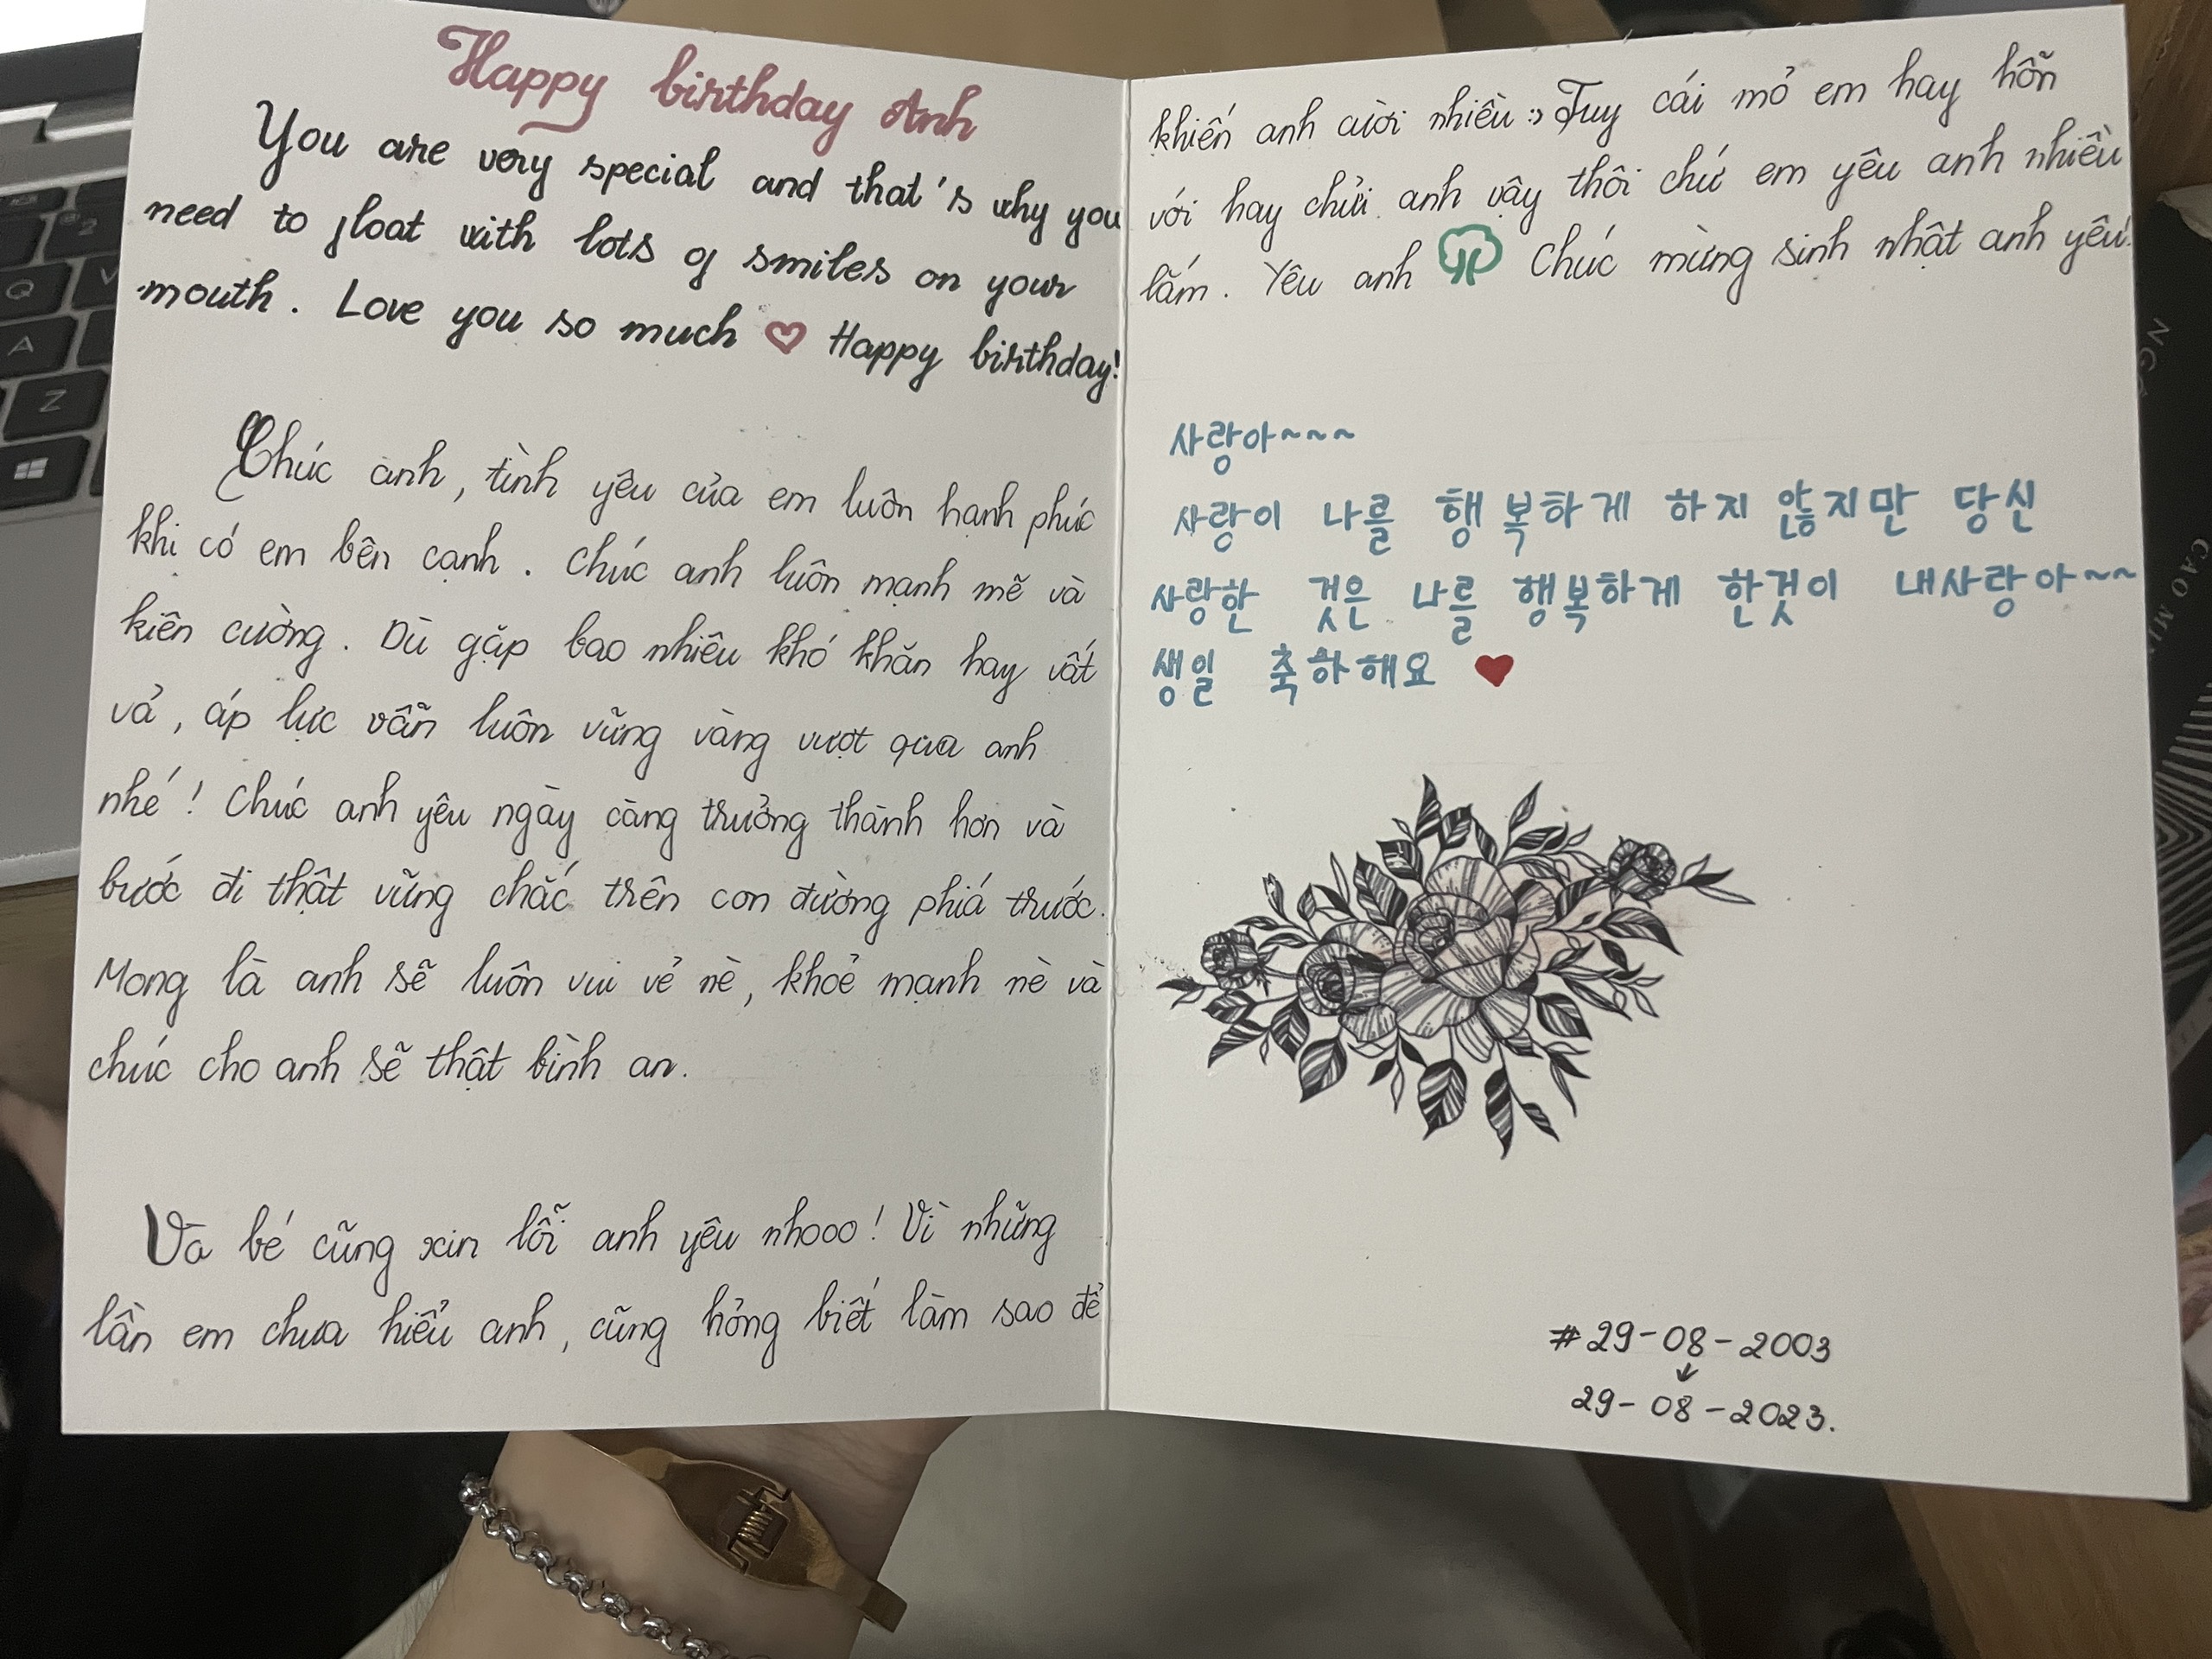 Happy birthday Anh
You are very special and that's why you
need to float with lots of smiles on your
mouth. Love you so much ♡ Happy birthday!
Chúc anh, tình yêu của em luôn hạnh phúc
khi có em bên cạnh. Chúc anh luôn mạnh mẽ và
kiên cường. Dù gặp bao nhiêu khó khăn hay vất
vả, áp lực vẫn luôn vững vàng vượt qua anh
nhé! Chúc anh yêu ngày càng trưởng thành hơn và
bước đi thật vững chắc trên con đường phiá trước.
Mong là anh sẽ luôn vui vẻ nè, khoẻ mạnh nè và
chúc cho anh sẽ thật bình an.
Và bé cũng xin lỗi anh yêu nhooo! Vì những
lần em chưa hiểu anh, cũng hỏng biết làm sao để
khiến anh cười nhiều :> Tuy cái mỏ em hay hỗn
với hay chửi anh vậy thôi chứ em yêu anh nhiều
lắm. Yêu anh Chúc mừng sinh nhật anh yêu!
사랑아~~~
사랑이 나를 행복하게 하지 않지만 당신
사랑한 것은 나를 행복하게 한것이 내사랑아~~
생일 축하해요 ♥
#29-08-2003
↓
29-08-2023.
Q
A
Z
2
V
CAO MI